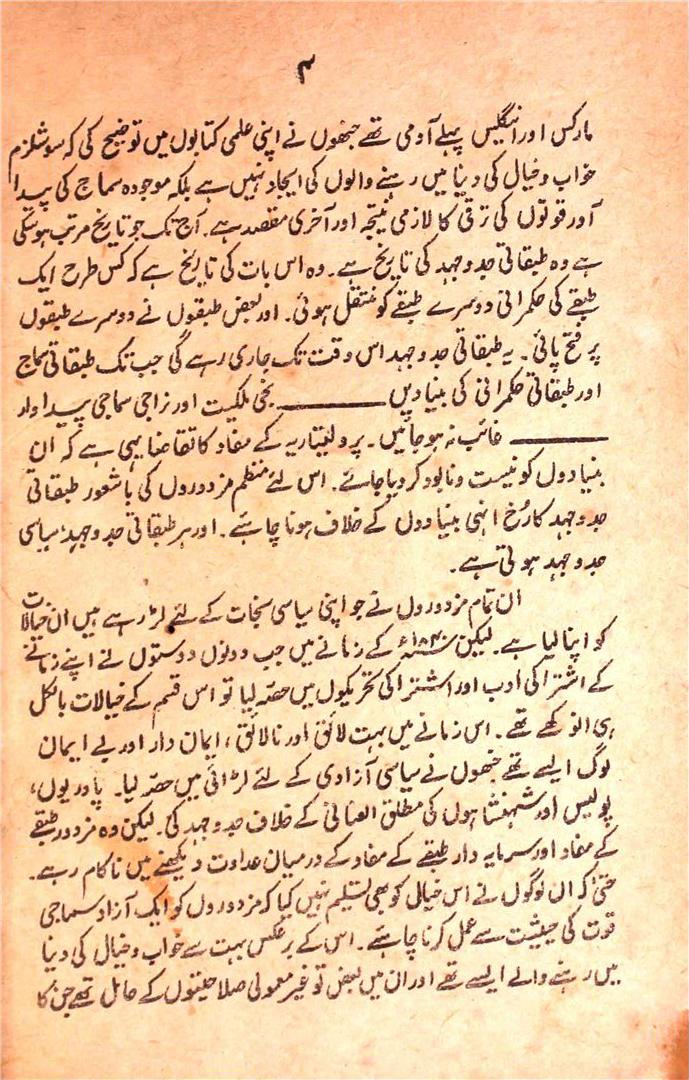 ۴
مارکس اور انیگلیس پہلے آدمی تھے جنھوں نے اپنی علمی کتابوں میں توضیح کی کہ سوشلزم
خواب و خیال کی دنیا میں رہنے والوں کی ایجاد نہیں ہے بلکہ موجودہ سماج کی پیدا
آور قوتوں کی ترقی کا لازمی نتیجہ اور آخری مقصد ہے۔ آج تک جو تاریخ مرتب ہو سکی
ہے وہ طبقاتی جدوجہد کی تاریخ ہے۔ وہ اس بات کی تاریخ ہے کہ کس طرح ایک
طبقے کی حکمرانی دوسرے طبقے کو منتقل ہوئی۔ اور بعض طبقوں نے دوسرے طبقوں
پر فتح پائی۔ یہ طبقاتی جدوجہد اس وقت تک جاری رہے گی جب تک طبقاتی سماج
اور طبقاتی حکمرانی کی بنیادیں ——— نجی ملکیت اور نراجی سماجی پیداوار
——— غائب نہ ہو جائیں۔ پرولیتاریہ کے مفاد کا تقاضا یہی ہے کہ ان
بنیادوں کو نیست و نابود کر دیا جائے۔ اس لئے منظم مزدوروں کی باشعور طبقاتی
جدوجہد کا رُخ انہی بنیادوں کے خلاف ہونا چاہئے۔ اور ہر طبقاتی جدوجہد، سیاسی
جدوجہد ہوتی ہے۔
ان تمام مزدوروں نے جو اپنی سیاسی نجات کے لئے لڑ رہے ہیں ان خیالات
کو اپنا لیا ہے۔ لیکن ۱۸۴۰ء کے زمانے میں جب دونوں دوستوں نے اپنے زمانے
کے اشتراکی ادب اور اشتراکی تحریکوں میں حصّہ لیا تو اس قسم کے خیالات بالکل
ہی انوکھے تھے۔ اس زمانے میں بہت لائق اور نالائق، ایمان دار اور بے ایمان
لوگ ایسے تھے جنھوں نے سیاسی آزادی کے لئے لڑائی میں حصّہ لیا۔ پادریوں،
پولیس اور شہنشاہوں کی مطلق العنانی کے خلاف جدوجہد کی۔ لیکن وہ مزدور طبقے
کے مفاد اور سرمایہ دار طبقے کے مفاد کے درمیان عداوت دیکھنے میں ناکام رہے۔
حتیٰ کہ ان لوگوں نے اس خیال کو بھی تسلیم نہیں کیا کہ مزدوروں کو ایک آزاد سماجی
قوت کی حیثیت سے عمل کرنا چاہئے۔ اس کے برعکس بہت سے خواب و خیال کی دنیا
میں رہنے والے ایسے تھے اور ان میں بعض تو غیر معمولی صلاحیتوں کے حامل تھے جن کا